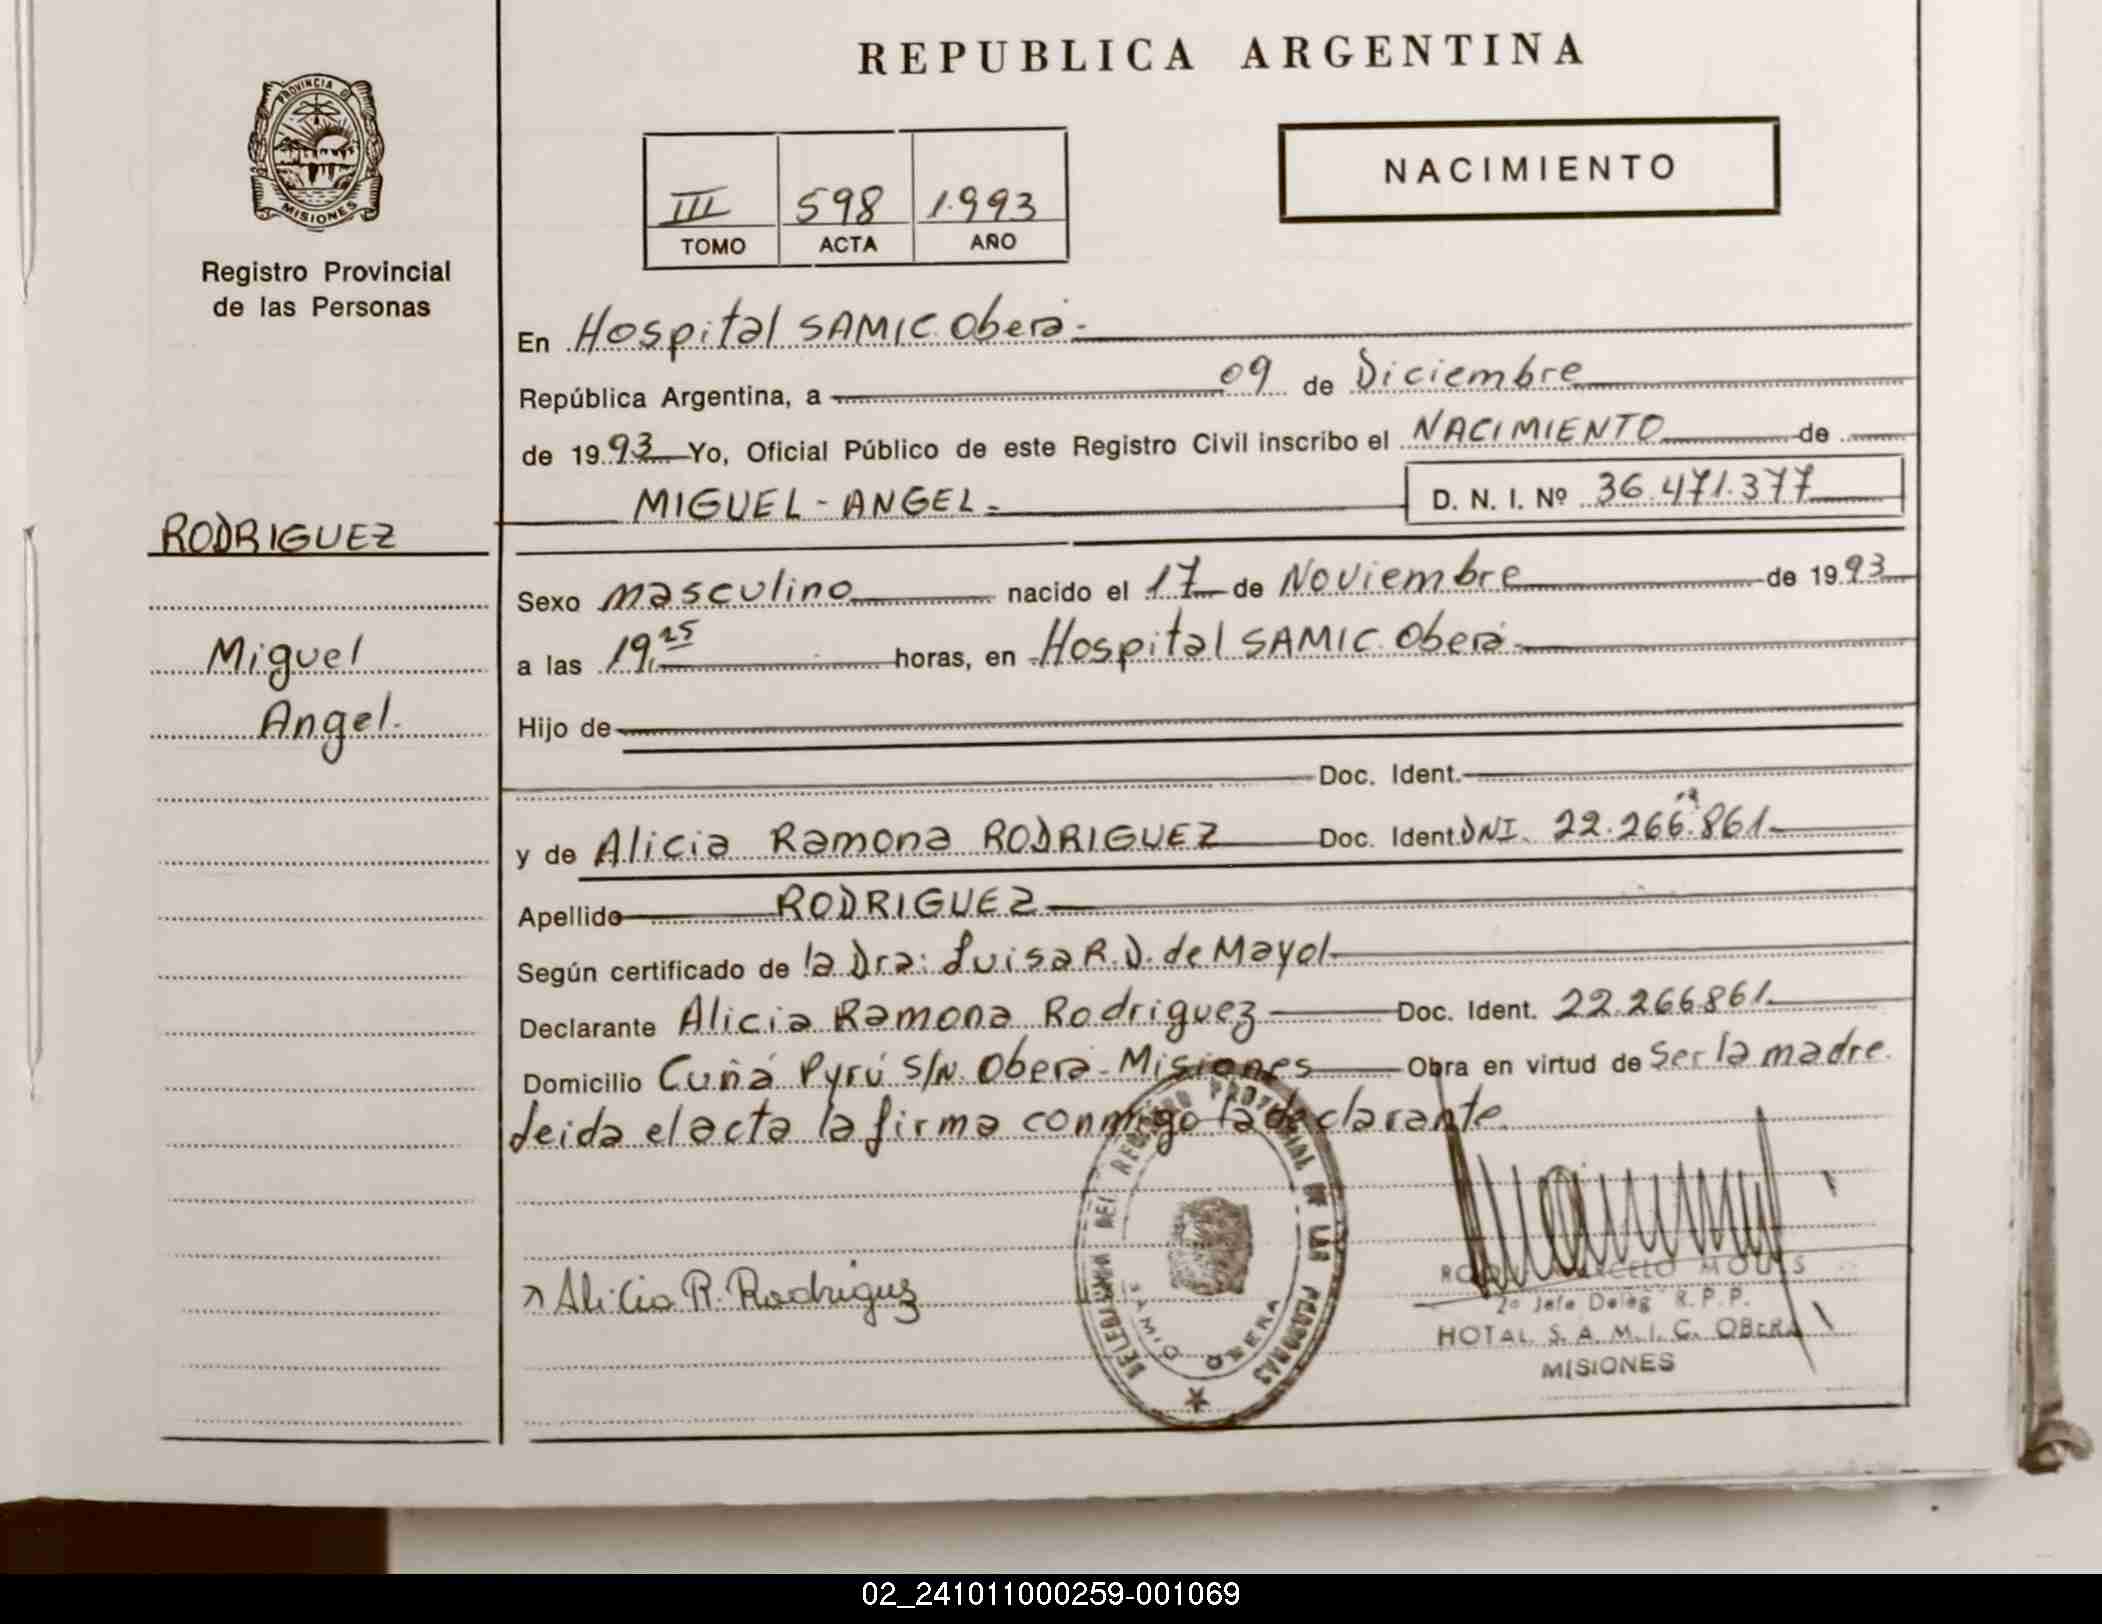 REPUBLICA ARGENTINA
PROVINCIA D
MISIONES
Registro Provincial
de las Personas
NACIMIENTO
III 598 1.993
TOMO ACTA AÑO
En Hospital SAMIC Oberá.-
República Argentina, a 09 de Diciembre
de 1993 Yo, Oficial Público de este Registro Civil inscribo el NACIMIENTO de
MIGUEL - ANGEL.- D. N. I. Nº 36.471.377
RODRIGUEZ
Miguel
Angel.
Sexo masculino nacido el 17 de Noviembre de 1993
a las 19,25 horas, en Hospital SAMIC Oberá.-
Hijo de
Doc. Ident.
y de Alicia Ramona RODRIGUEZ Doc. Ident. DNI. 22.266.861
Apellido RODRIGUEZ
Según certificado de la Dra: Luisa R. D. de Mayol
Declarante Alicia Ramona Rodriguez Doc. Ident. 22.266.861
Domicilio Cuñá Pyrú S/N. Oberá - Misiones Obra en virtud de Ser la madre.
Leida el acta la firma conmigo la declarante.
DELEGACION DEL REGISTRO PROVINCIAL DE LAS PERSONAS
SAMIC OBERA
Alicia R. Rodriguez
MOULS
2º Jefe Deleg R.P.P.
HOTAL S. A. M. I. C. OBERA
MISIONES
02_241011000259-001069